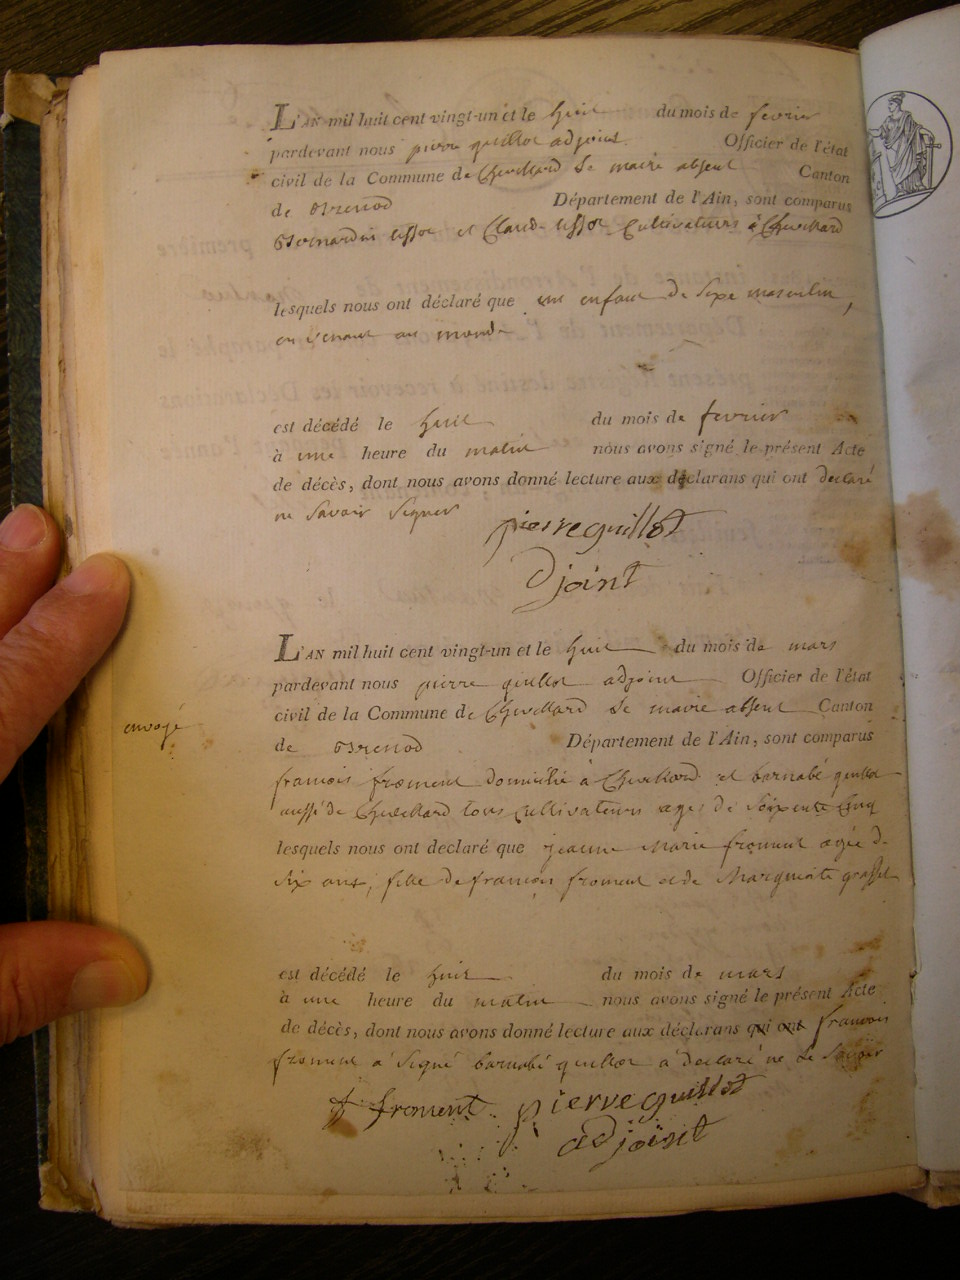 L'AN mil huit cent vingt-un et le huit du mois de fevrier
pardevant nous pierre guillot adjoint Officier de l'état
civil de la Commune de Chevillard Le maire absent Canton
de Brenod Département de l'Ain, sont comparus
Bernardin et Claude Cultivateurs à Chevillard
lesquels nous ont déclaré que un enfant de sexe masculin,
en venant au monde
est décédé le huit du mois de fevrier
à une heure du matin nous avons signé le présent Acte
de décès, dont nous avons donné lecture aux déclarans qui ont declaré
ne Savoir Signer
pierre guillot
Djoint
L'AN mil huit cent vingt-un et le huit du mois de mars
pardevant nous pierre guillot adjoint Officier de l'état
civil de la Commune de Chevillard Le maire absent Canton
envoyé
de Brenod Département de l'Ain, sont comparus
francois froment domicilié à Chevillard et barnabé guillot
aussi de Chevillard tous Cultivateurs ages de Soixente Cinq
lesquels nous ont déclaré que jeanne Marie froment agée de
six ans, fille de francois froment et de Marguerite
est décédé le huit du mois de mars
à une heure du matin nous avons signé le présent Acte
de décès, dont nous avons donné lecture aux déclarans qui ont francois
froment a Signé barnabé guillot a declaré ne Le Savoir
f froment pierre guillot
aDjoint